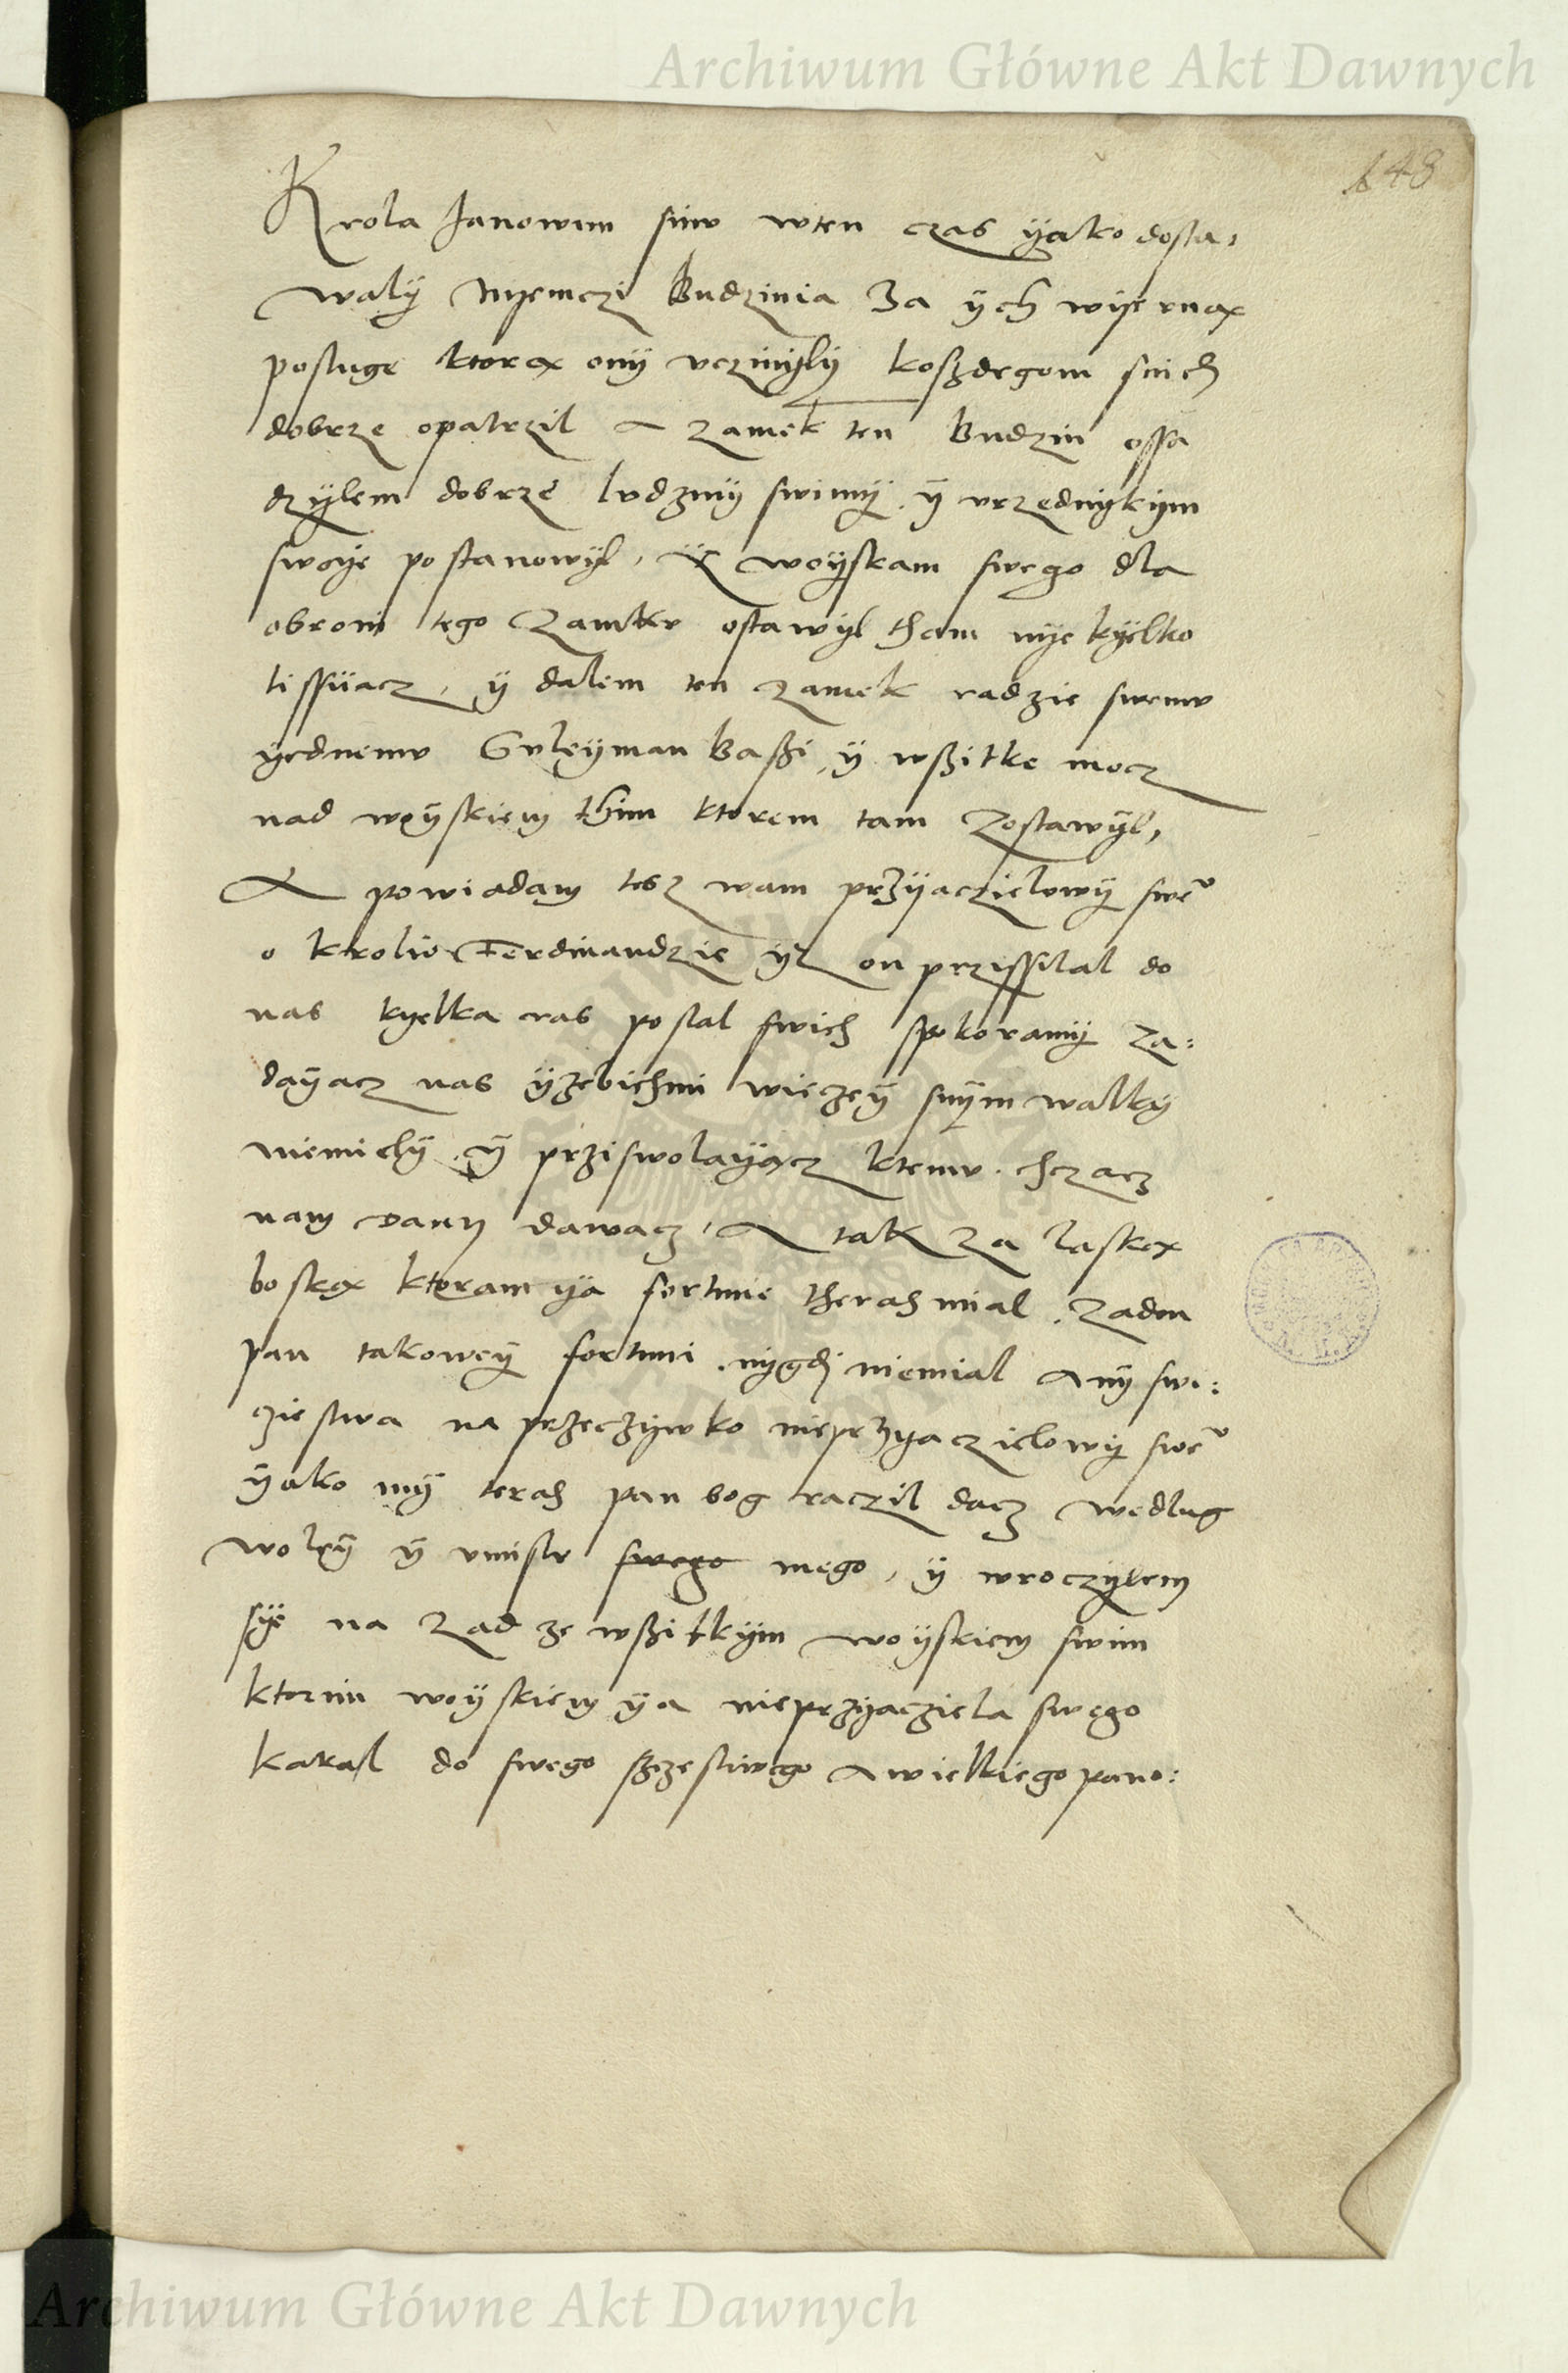 Archiwum Główne Akt Dawnych
148
Krola Janowim sinw wten czas ÿako dosta,
walÿ Nyemczi Budzinia Za ÿch wiernax
posluge ktorex onÿ vczinÿlÿ koszdegom snich
dobrze opatrzil A zamek ten Budzin ossa
dzÿlem dobrze ludzmÿ swimÿ. ÿ vrzednÿkÿm
swoÿe postanowÿl, ÿ woÿskam swego dla
obroni tego Zamku ostawÿl tham nÿekÿelko
tissiacz, ÿ dalem ten zamek radzie swemv
ÿednemv Sulÿman Baszi, ÿ wszitke mocz
nad woÿskiem thim ktorem tam zostawÿl,
A powiadam tesz wam przÿaczielowÿ swe°
o krolio Ferdinandzie ÿz on przissilal do
nas kÿelka ras poslal swich spokoramÿ za:
daÿacz nas ÿzebichmi wieczeÿ snÿm walkÿ
niemielÿ. ÿ prziswolaÿacz ktemv. chczacz
nam danÿ dawacz, A tak za laskex
boskex ktoram ÿa fortune therah mial. zaden
pan takoweÿ fortuni. nÿgdi niemial Anÿ swi:
zieswa na przeczÿwko nieprzÿaczielowÿ swe°
ÿako mÿ terah pan bog raczil dacz wedlug
woleÿ ÿ vmislv swego mego, ÿ wroczÿlem
sÿe na zad ze wszitkÿm woÿskiem swim
ktorim woÿskiem ÿa nieprzÿacziela swego
karal do swego szczesliwego A wielkiego pano:
Archiwum Główne Akt Dawnych